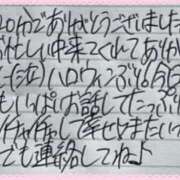 20分でありがとうございました
お忙しい中来てくれてありが
(泣)ハロウィンぶりのSi
いっぱいお話してたっぷり
イチャイチャして幸せまたいつ
でも連絡してね♪